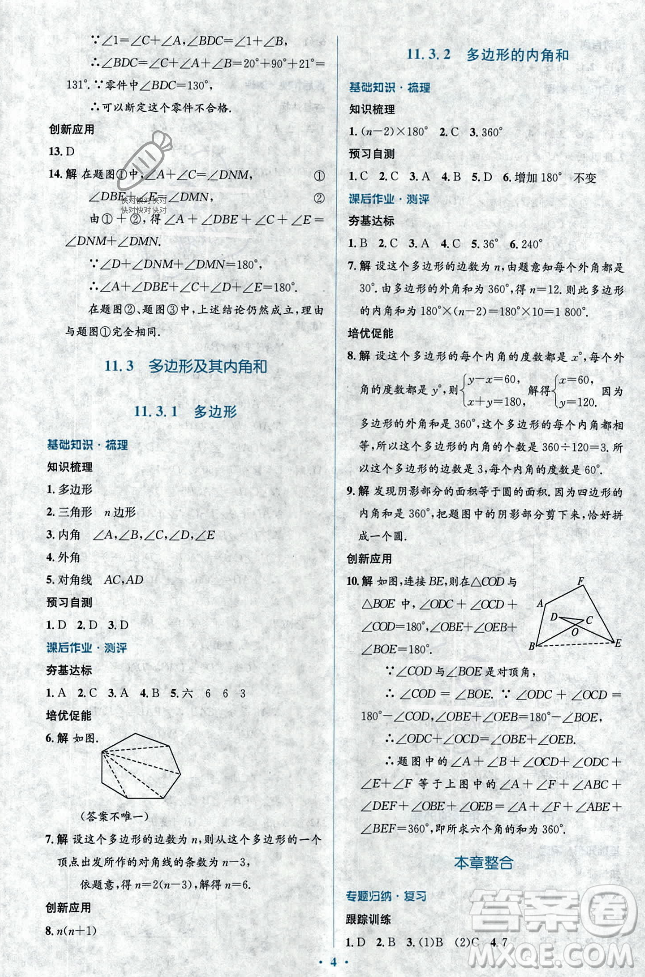 ∵∠1=∠C+∠CAD,∠2=∠B+∠BAD,
∴∠BDC=∠1+∠2=∠C+∠CAD+∠B+
∠BAD=∠B+∠BAC+∠C=20°+90°+21°=
131°.∵∠BDC=130°,
∴可以断定这个零件不合格.
创新应用
13.D
14.解 在题图①中,∠A+∠C=∠DNM, ①
∠DBE+∠E=∠DMN, ②
由①+②,得∠A+∠DBE+∠C+∠E=
∠DNM+∠DMN.
∵∠D+∠DNM+∠DMN=180°,
∴∠A+∠DBE+∠C+∠D+∠E=180°.
在题图②、题图③中,上述结论仍然成立,理由
与题图①完全相同.
11.3 多边形及其内角和
11.3.1 多边形
基础知识·梳理
知识梳理
1.多边形
2.三角形 n边形
3.内角 ∠A,∠B,∠C,∠D,∠E
4.外角
5.对角线 AC,AD
预习自测
1.D 2.D 3.D
课后作业·测评
夯基达标
1.A 2.C 3.A 4.B 5.六 6 6 3
培优促能
6.解 如图.
(答案不唯一)
7.解 设这个多边形的边数为n,则从这个多边形的一个
顶点出发所作的对角线的条数为n-3,
依题意,得n=2(n-3),解得n=6.
创新应用
8.n(n+1)
11.3.2 多边形的内角和
基础知识·梳理
知识梳理
1.(n-2)×180° 2.C 3.360°
预习自测
1.B 2.C 3.A 4.C 5.D 6.增加180° 不变
课后作业·测评
夯基达标
1.B 2.C 3.C 4.C 5.36° 6.240°
7.解 设这个多边形的边数为n,由题意可知每个外角都是
30°.由多边形的外角和为360°,得n=12.所以此多边
形的内角和为180°×10=1 800°.
培优促能
8.解 设这个多边形的每个内角的度数都是x°,每个外角
的度数都是y°,则{y-x=60, x+y=180,解得{x=60, y=120.因为
多边形的外角和是360°,所以这个多边形的边数为
360÷120=3.故这个多边形的边数为360÷120=3.所
以这个多边形的边数是3,每个内角的度数都是60°.
9.解 发现阴影部分的面积等于圆的面积.因为四边形的
内角和为360°,把题图中的阴影部分剪下来,恰好拼
成一个圆.
创新应用
10.解 如图,连接BE,则在△COD与
△BOE中,∠ODC+∠OCD+
∠COD=180°,∠OBE+∠OEB+
∠BOE=180°.
∵∠COD与∠BOE是对顶角,
∴∠COD=∠BOE.∵∠ODC+∠OCD=
180°-∠COD,∠OBE+∠OEB=180°-∠BOE,
∴∠ODC+∠OCD=∠OBE+∠OEB.
∴题图中∠A+∠B+∠OCD+∠ODC+∠E+
∠F=∠A+∠ABO+∠OBE+∠OEB+∠OEF+
∠F=360°.所以所求六个角的和为360°.
A
B
C
D
E
F
O
本章整合
专题归纳·复习
跟踪训练
1.D 2.D 3.(1)B (2)C 4.7
4
快对快对快对
快对快对快对
答案圈
MXQE.COM